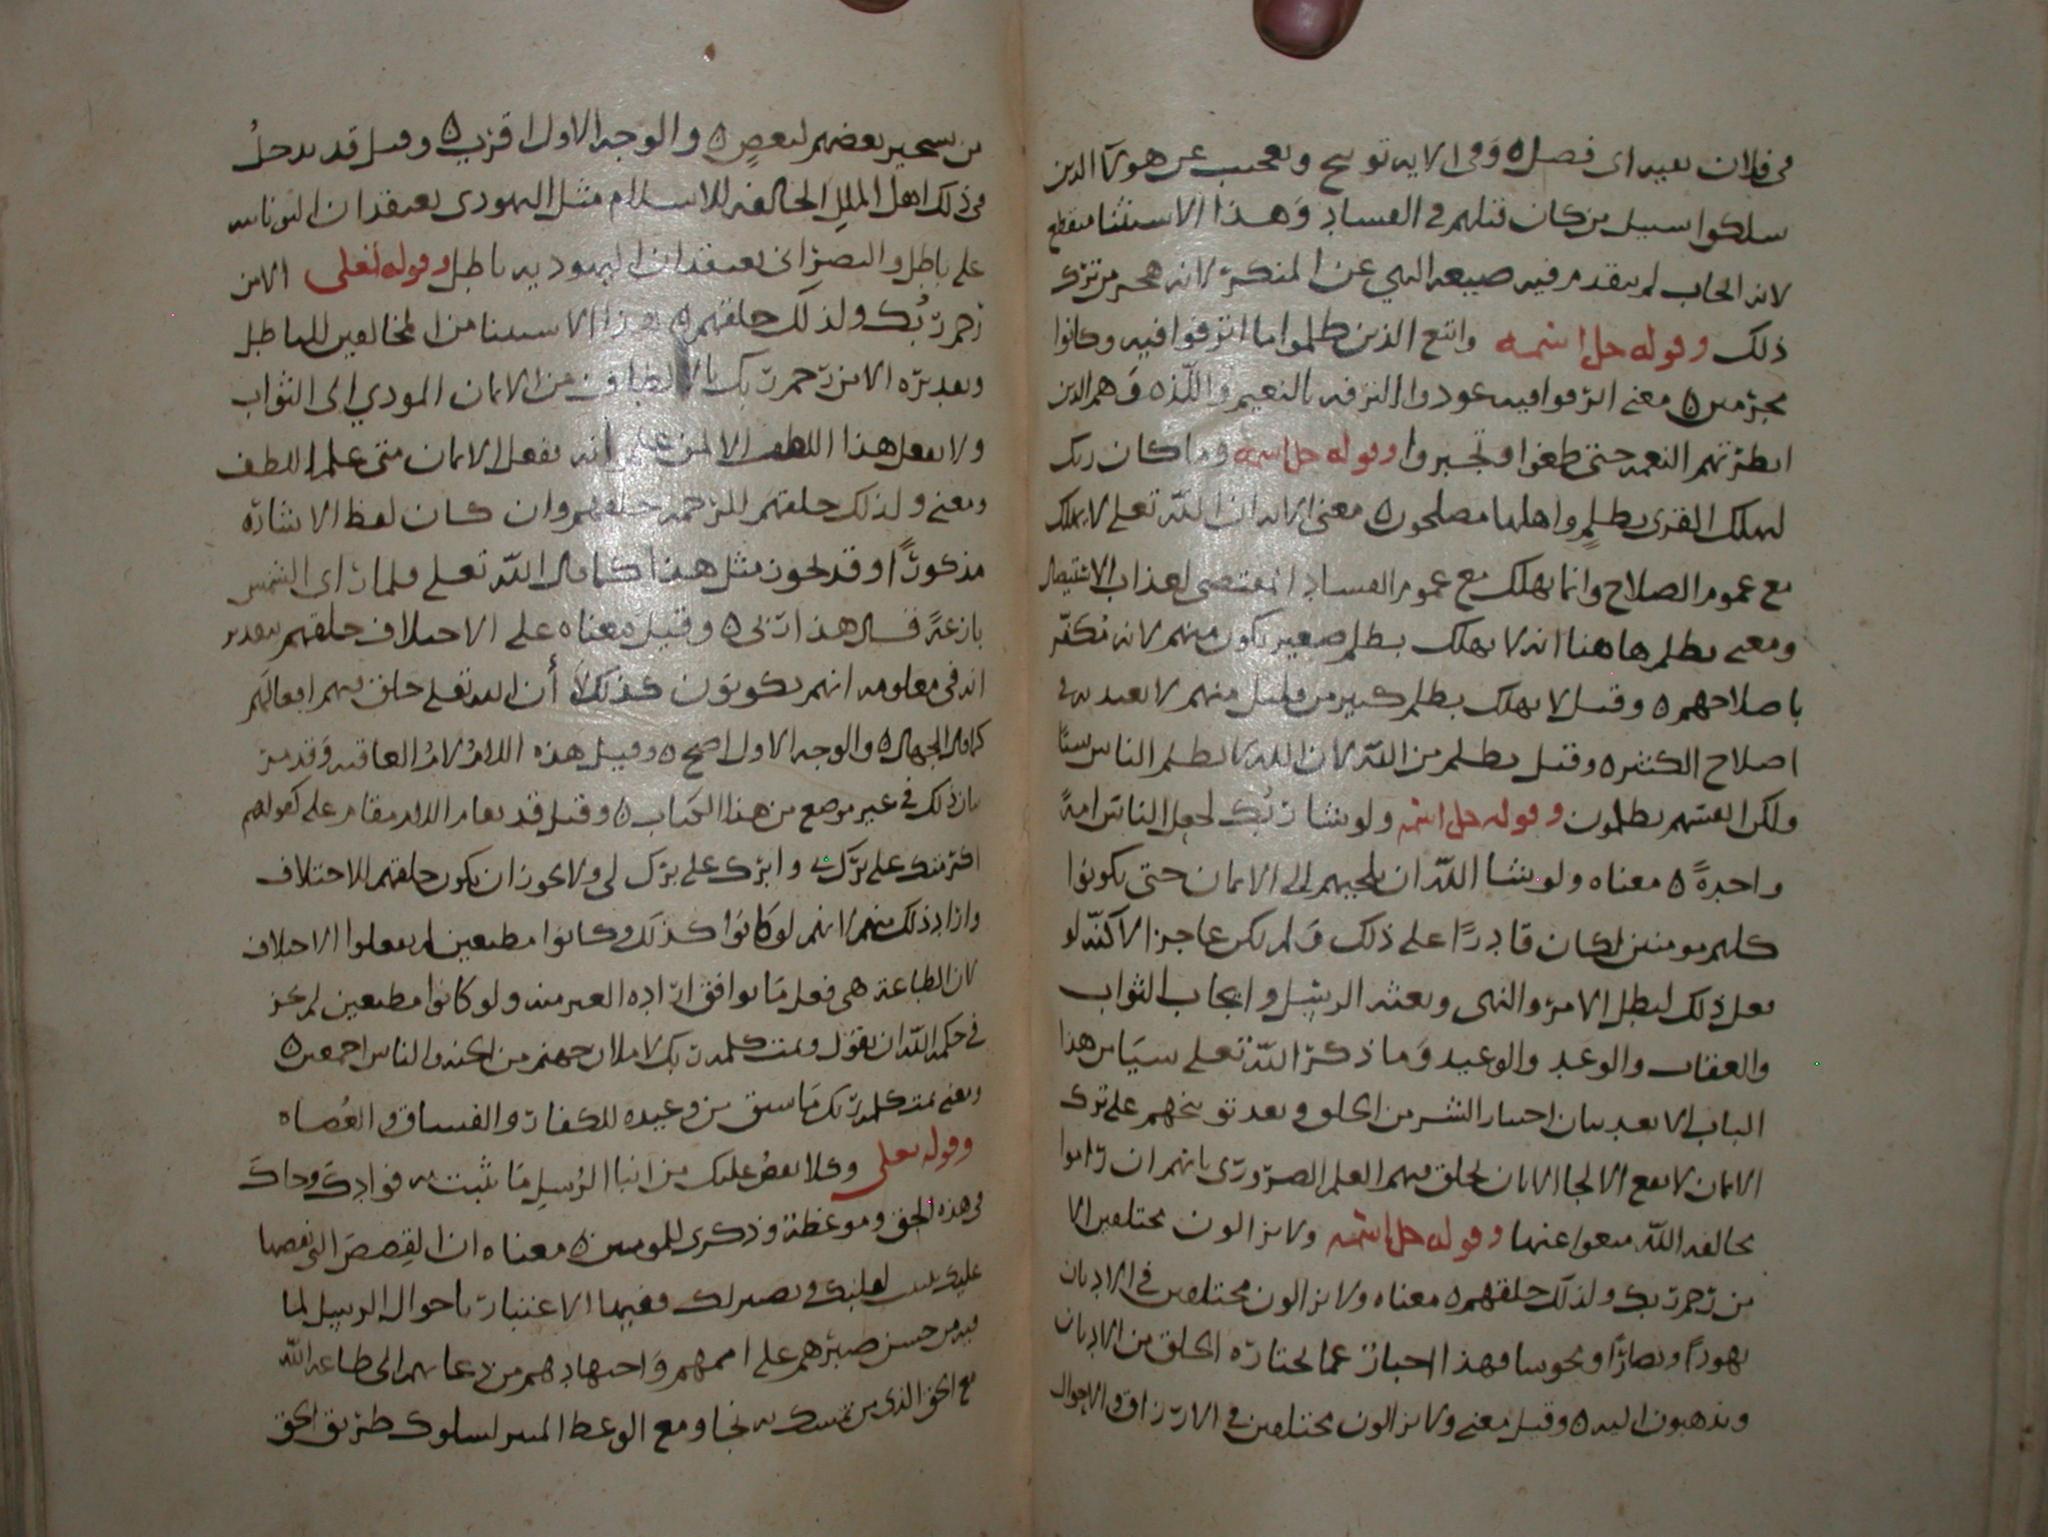 في فلان بقيه اى فضل ه وفى الايه توبيخ وتعجيب عن هولآ الذين
سلكوا سبيل من كان قبلهم فى الفساد وهذا الاستثنا منقطع
لانه ايجاب لم يتقدم فيه صيغه النهي عن المنكر لانه
ذلك وقوله جل اسمه واتبع الذين ظلموا ما اترفوا فيه وكانوا
مجرمين ه معنى اترفوا فيه عودوا الترفه بالنعيم واللذه وهم الذين
ابطرتهم النعمه حتى طغوا وتجبروا وقوله جل اسمه وما كان ربك
ليهلك القرى بظلم واهلها مصلحون ه معنى الايه ان الله تعلى لا يهلك
مع عموم الصلاح وانما يهلك مع عموم الفساد المقتضى لعذاب الاستيصال
ومعنى بظلم هاهنا انه لا يهلك بظلم صغير يكون منهم لانه مكفر
باصلاحهم ه وقيل لا يهلك بظلم كبير من قليل منهم لا يعتد به فى
اصلاح الكثير ه وقيل بظلم من الله لان الله لا يظلم الناس شيئا
ولكن انفسهم يظلمون وقوله جل اسمه ولو شا ربك لجعل الناس امةً
واحدةً ه معناه ولو شا الله ان يلجيهم الى الايمان حتى يكونوا
كلهم مومنين لكان قادرًا على ذلك ولم يكن عاجزا لاكنه لو
فعل ذلك لبطل الامر والنهى وبعثه الرسل وايجاب الثواب
والعقاب والوعد والوعيد وما ذكر الله تعلى سيا من هذا
الباب الا بعد بيان اختيار الشر من الخلق وبعد توبيخهم على ترك
الايمان لا يقع الالجا الا بان يخلق فيهم العلم الضرورى بانهم ان راموا
مخالفه الله منعوا عنها وقوله جل اسمه ولا يزالون مختلفين الا
من رحم ربك ولذلك خلقهم ه معناه ولا يزالون مختلفين فى الاديان
يهوداً ونصارًا ومجوسا فهذا اخبار عما يختاره الخلق من الاديان
ويذهبون اليه ه وقيل معنى ولا يزالون مختلفين فى الارزاق والاحوال
من تسخير بعضهم لبعضٍ ه والوجه الاول اقرب ه وقيل قد يدخلُ
فى ذلك اهل الملل المخالفه للاسلام مثل اليهودى يعتقد ان النصرانيه
على باطل والنصرانى يعتقد ان اليهوديه باطل وقوله تعلى الا من
رحم ربُك ولذلك خلقهم ه هذا الاستثنا من المخالفين للباطل
وتقديره الا من رحم ربك بالالطاف من الايمان المودي الى الثواب
ولا يفعل هذا اللطف الا لمن علم انه يفعل الايمان متى علم اللطف
ومعنى ولذلك خلقهم للرحمه خلقهم وان كان لفظ الاشاره
مذكورًا وقد يجوز مثل هذا كما قال الله تعلى فلما راى الشمس
بازغةً قال هذا ربى ه وقيل معناه على الاختلاف خلقهم بتقدير
انه فى معلومه انهم يكونون كذلك لا أن الله تعلى خلق فيهم افعالهم
كما قال الجهال ه والوجه الاول اصح ه وقيل هذه اللام لام العاقبه وقد مر
بيان ذلك فى غير موضع من هذا الكتاب ه وقيل قد تقام اللام مقام على كقولهم
اكرمتك على برك بى وابرك على برك لى ولا يجوز ان يكون خلقهم للاختلاف
واراد ذلك منهم لانهم لو كانوا كذلك وكانوا مطيعين لم يفعلوا الاختلاف
لان الطاعة هى فعل ما يوافق اراده الغير منه ولو كانوا مطيعين لم يجز
فى حكمه الله ان يقول وتمت كلمه ربك لاملان جهنم من الجنه والناس اجمعين ه
ومعنى تمت كلمه ربك ما سبق من وعيده للكفار والفساق والعُصاه
وقوله تعلى وكلا نقصُ عليك من انبا الرُسلِ ما نثبت به فوادك وجاك
فى هذه الحق وموعظة وذكرى للمومنين ه معناه ان القصص التى نقصها
عليك تثبت لقلبك وتصبر لك ففيها الاعتبار باحوال الرسل لما
فيه من حسن صبرهم على اممهم واجتهادهم من دعايهم الى طاعه الله
مع الحق الذى من تمسك به نجا ومع الوعظ لسلوك طريق الحق